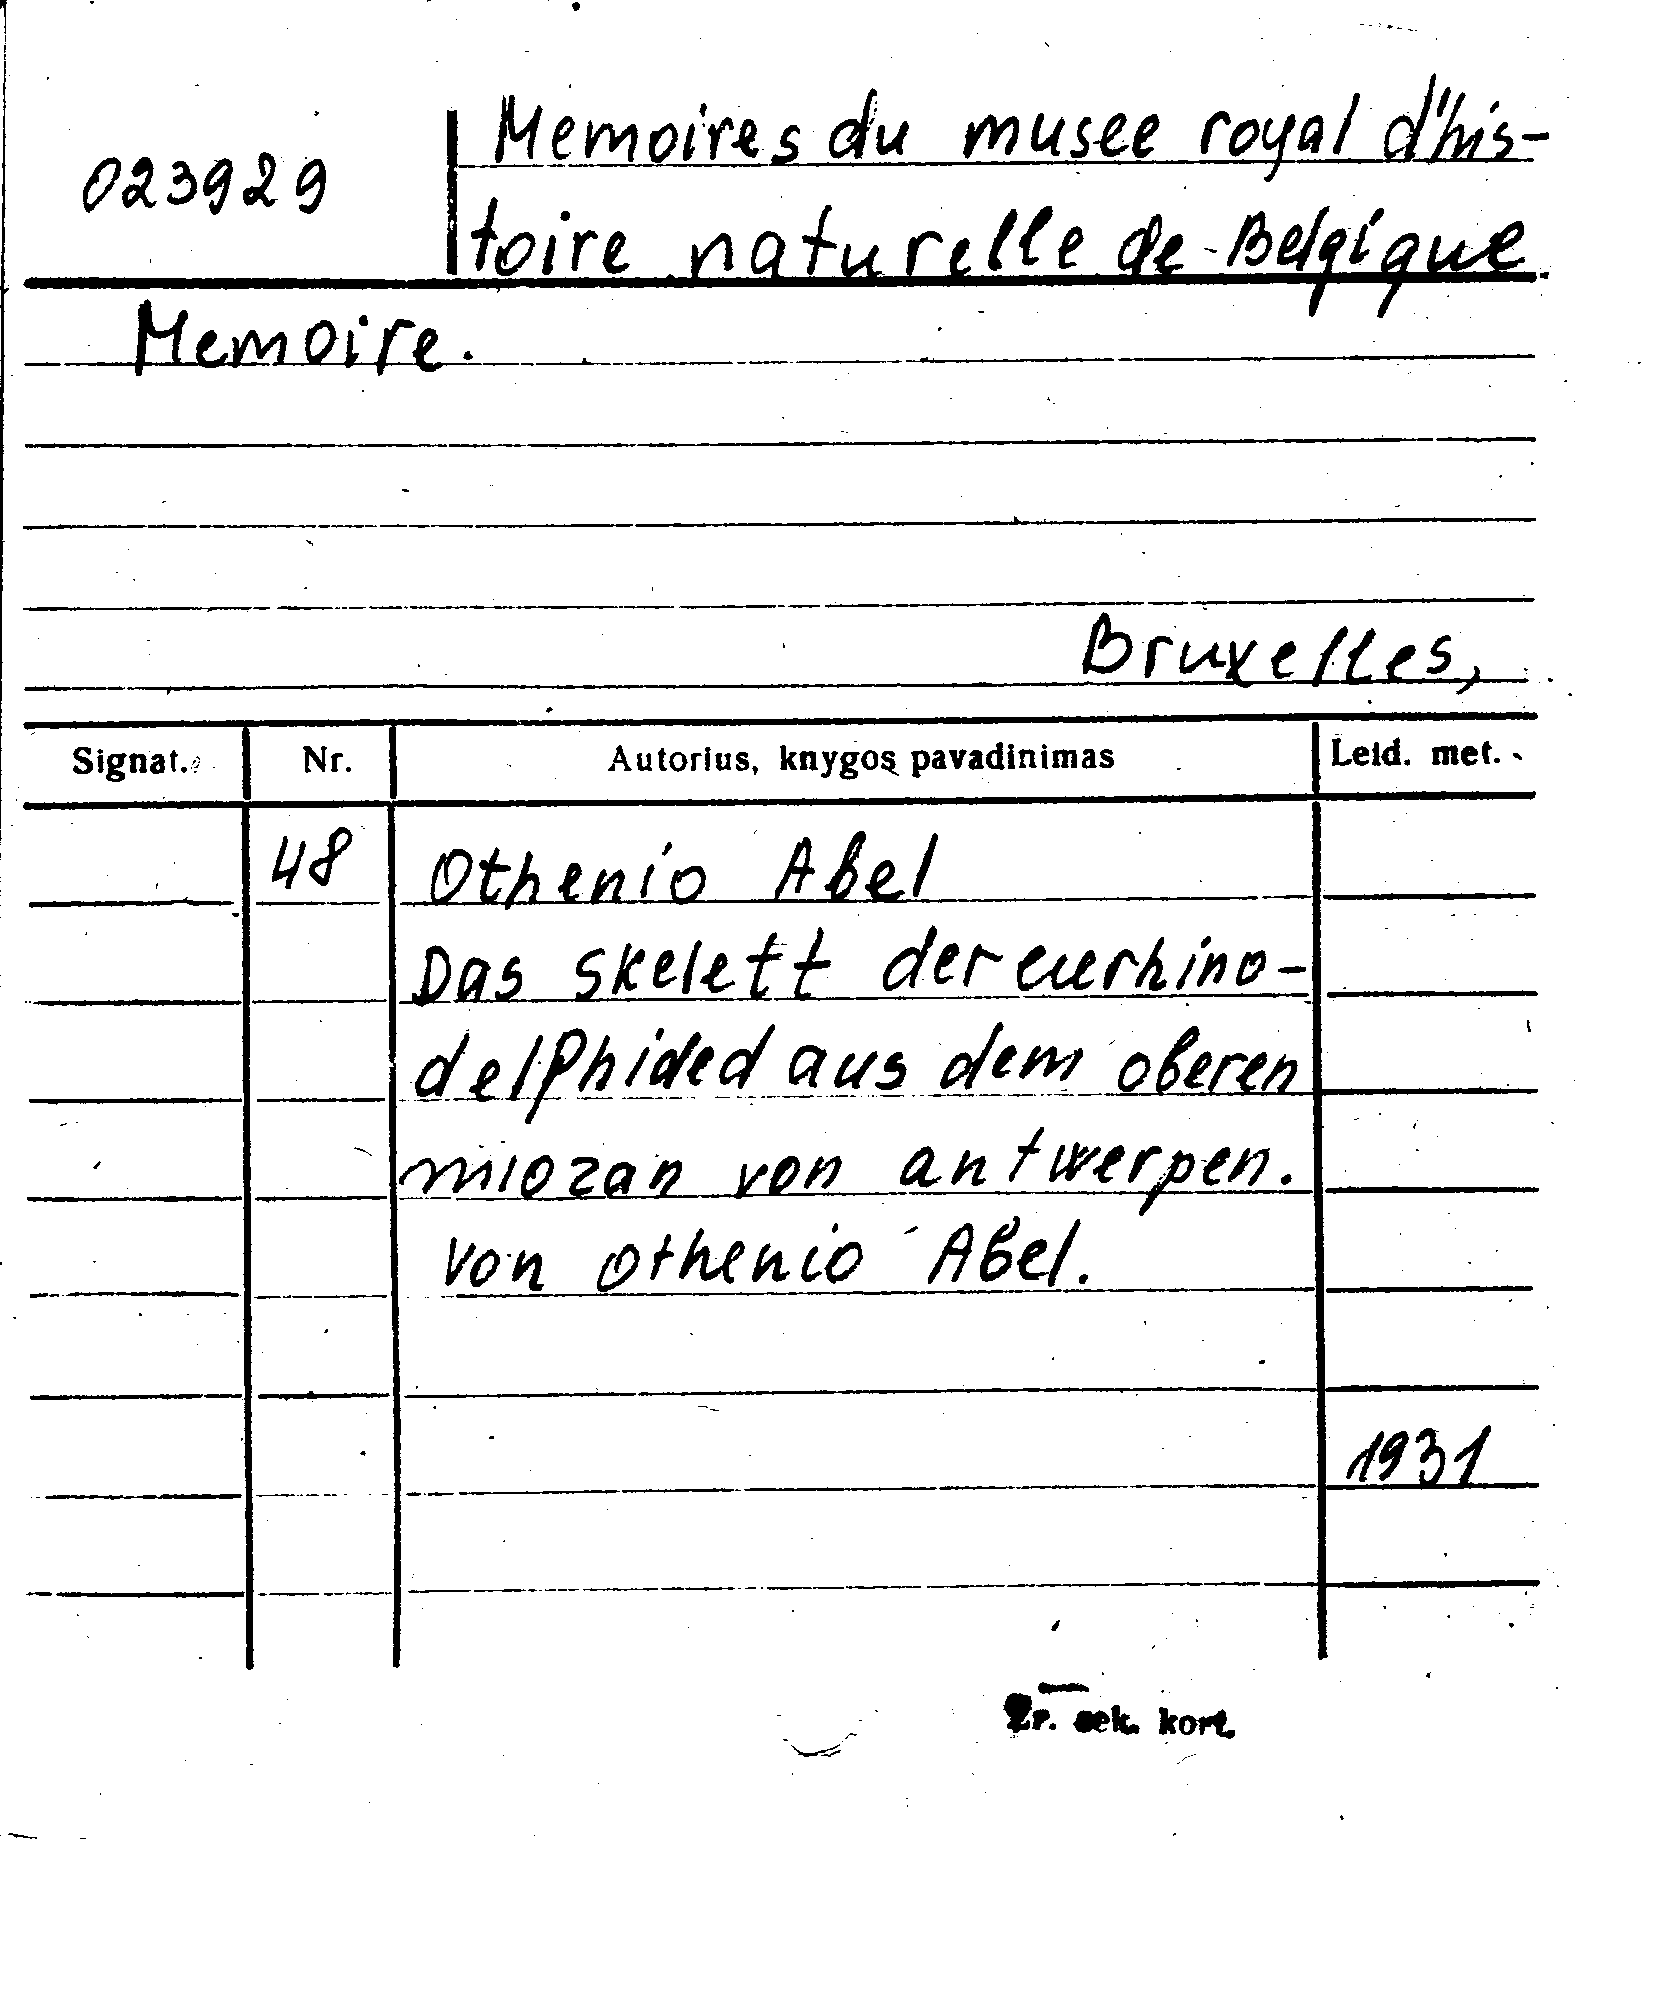 Memoires du musee royal d'his-
023929
toire naturelle de Belgique.
Memoire.
Bruxelles,
Signat. Nr. Autorius, knygos pavadinimas Leid. met.
48 Othenio Abel
Das skelett der eurhino-
delphided aus dem oberen
miozan von antwerpen.
von Othenio Abel.
1931
2r. sek. kort.